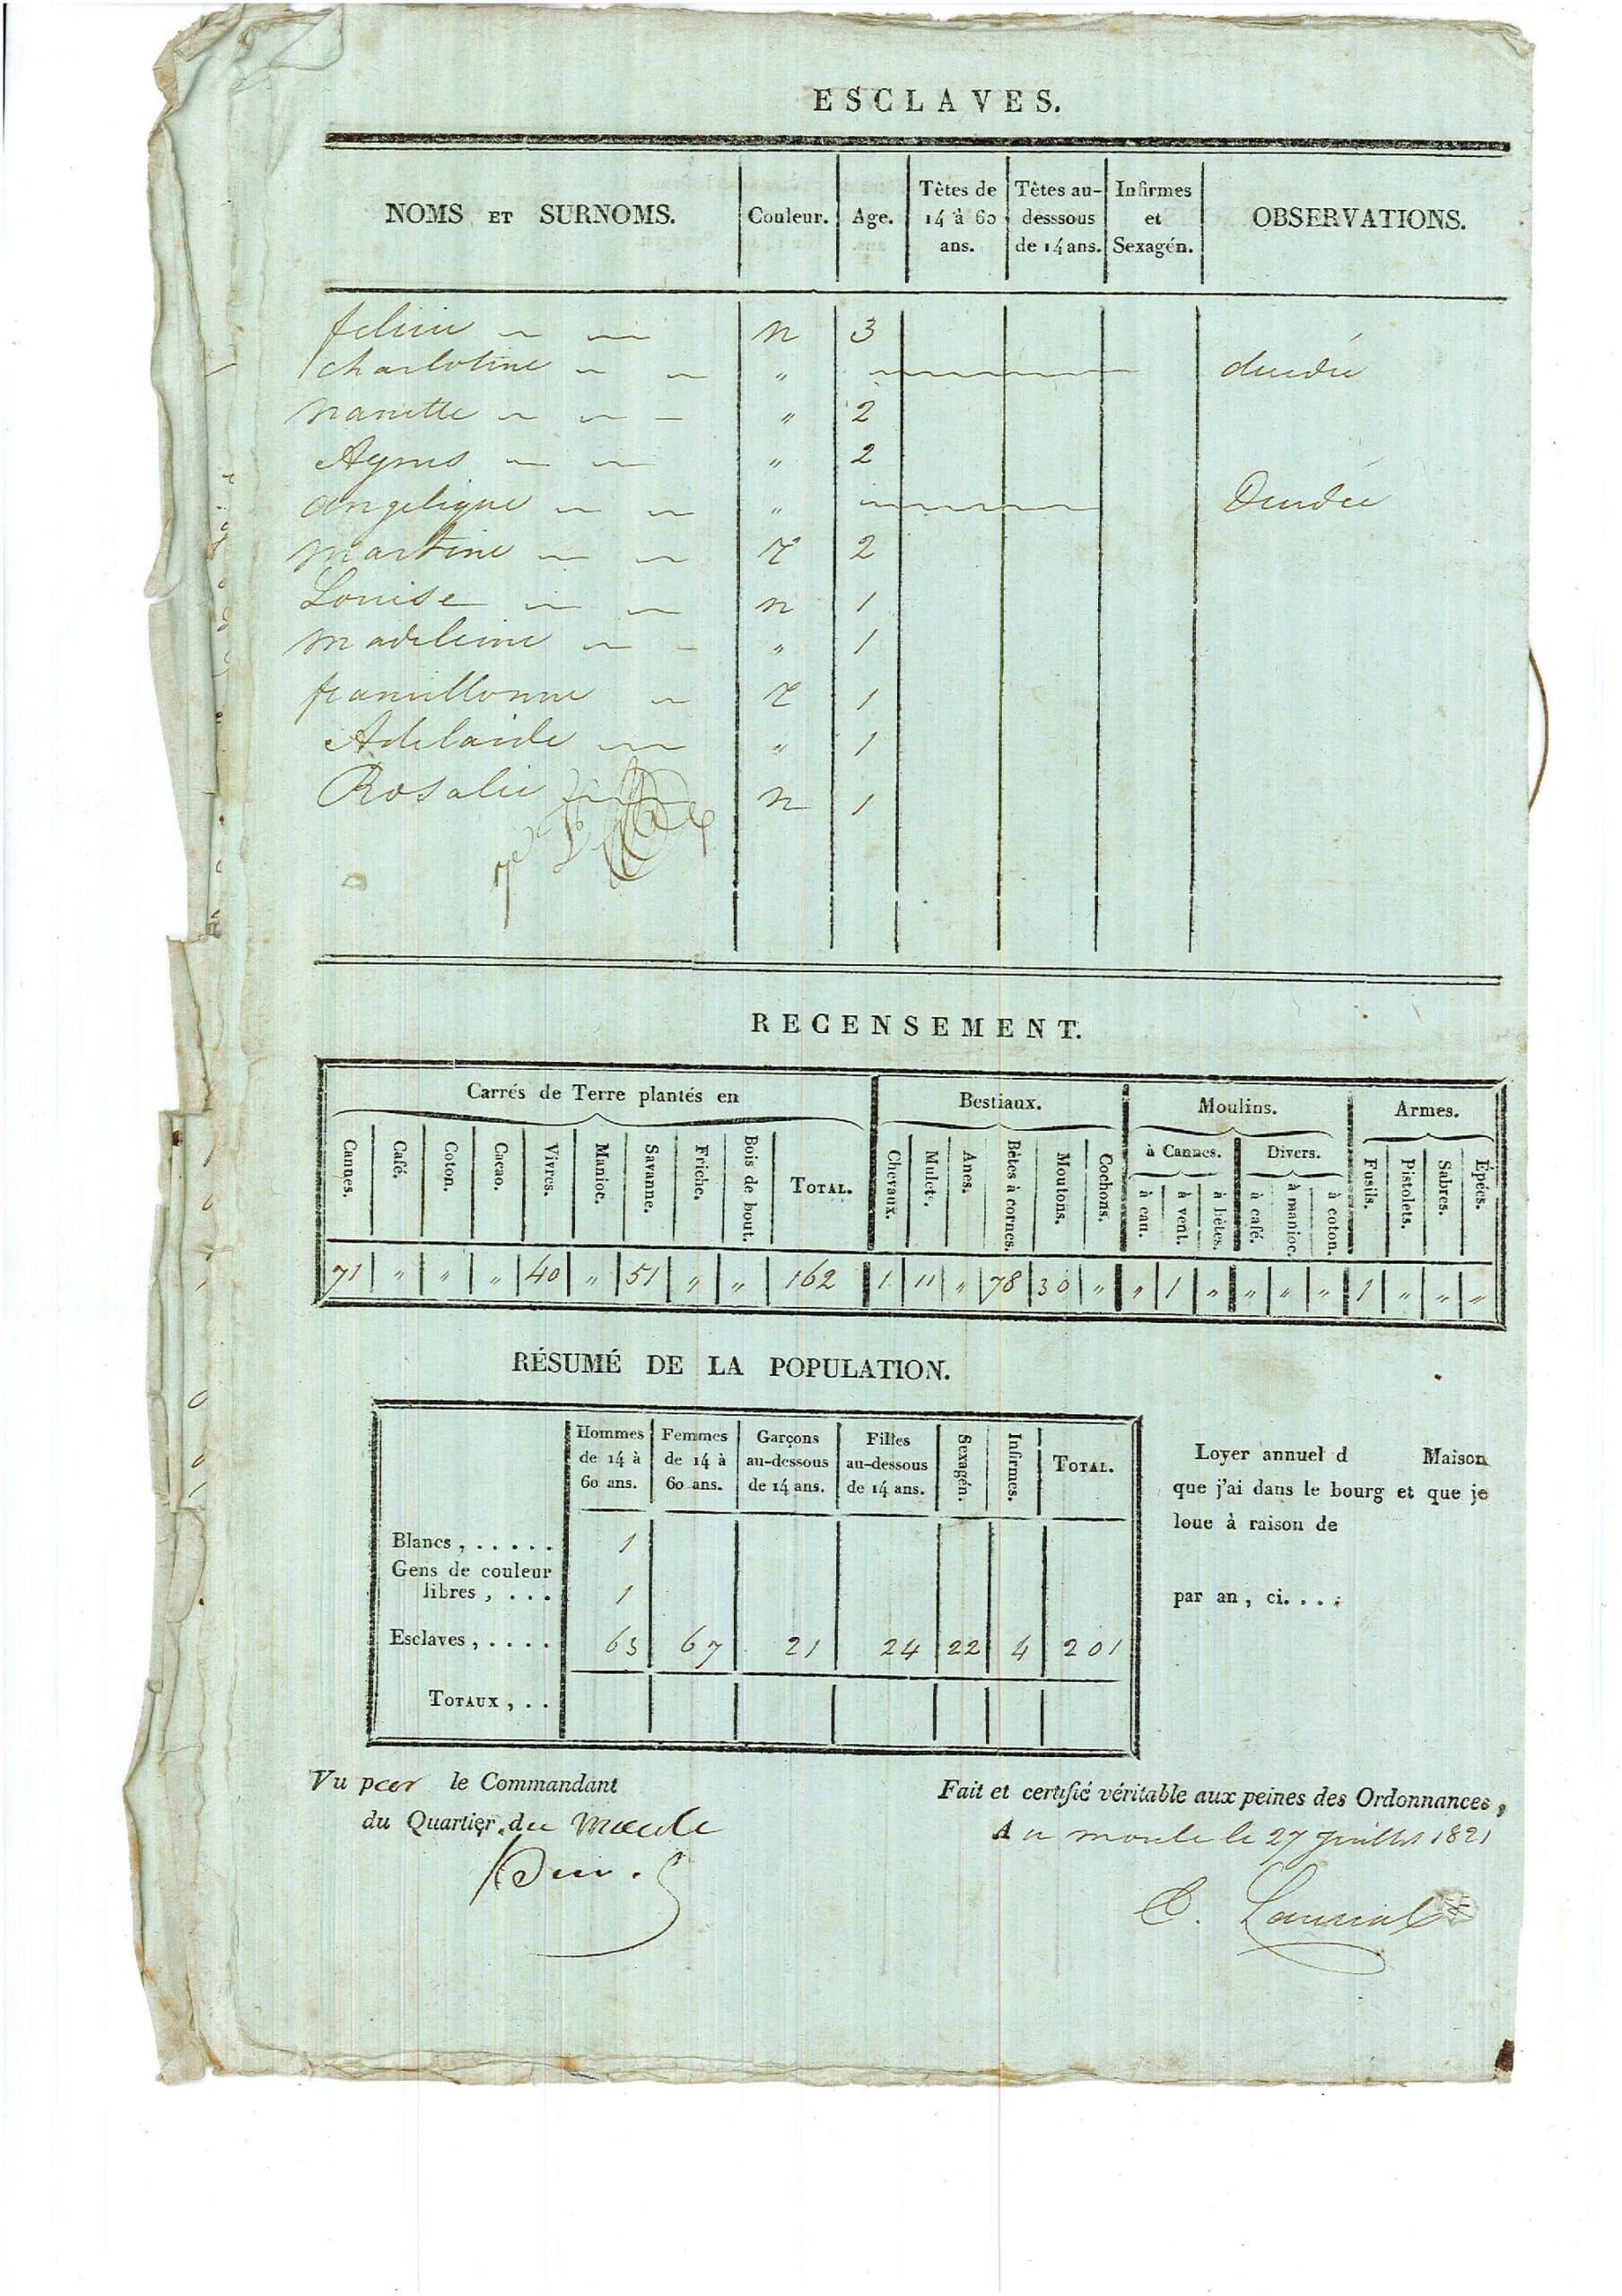 ESCLAVES.
NOMS ET SURNOMS. Couleur. Age. Têtes de 14 à 60 ans. Têtes au-desssous de 14 ans. Infirmes et Sexagén. OBSERVATIONS.
n 3
charlotine " 
nanette " 2
Agnes " 2
angelique "
martine 2
Louise n 1
madeleine " 1
1
Adelaide " 1
Rosalie n 1
RECENSEMENT.
Carrés de Terre plantés en Bestiaux. Moulins. Armes.
à Cannes. Divers.
Cannes. Café. Coton. Cacao. Vivres. Manioc. Savanne. Friche. Bois de bout. TOTAL. Chevaux. Mulets. Anes. Bètes à cornes. Moutons. Cochons. à eau. à vent. à bètes. à café. à manioc. à coton. Fusils. Pistolets. Sabres. Épées.
71 " " " 40 " 51 " " 162 1 11 " 78 30 " " 1 " " " " 1 " " "
RÉSUMÉ DE LA POPULATION.
Hommes de 14 à 60 ans. Femmes de 14 à 60 ans. Garçons au-dessous de 14 ans. Filles au-dessous de 14 ans. Sexagén. Infirmes. TOTAL.
Blancs, ..... 1
Gens de couleur
libres, ... 1
Esclaves, .... 63 67 21 24 22 4 201
TOTAUX, ..
Loyer annuel d Maison
que j'ai dans le bourg et que je
loue à raison de
par an, ci....
Vu par le Commandant
du Quartier du Moule
Fait et certifié véritable aux peines des Ordonnances,
Au moule le 27 juillet 1821